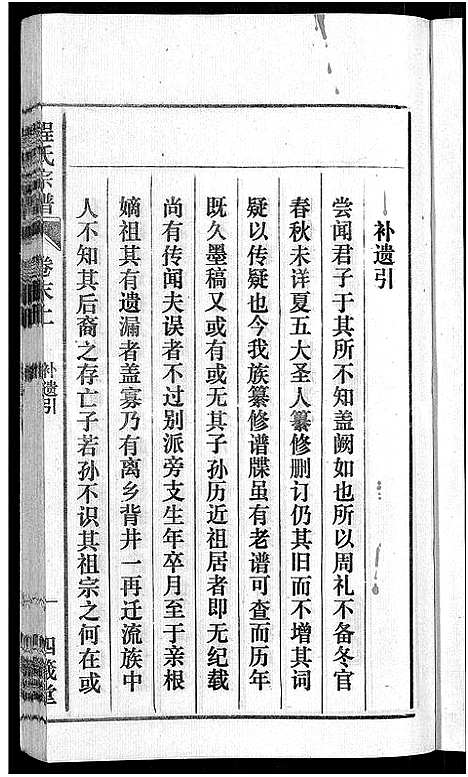 补遗引
尝闻君子于其所不知盖阙如也所以周礼不备冬官
春秋未详夏五大圣人纂修删订仍其旧而不增其词
疑以传疑也今我族纂修谱牒虽有老谱可查而历年
既久墨稿又或有或无其子孙历近祖居者即无纪载
尚有传闻夫误者不过别派旁支生年卒月至于亲根
嫡祖其有遗漏者盖寡乃有离乡背井一再迁流族中
人不知其后裔之存亡子若孙不识其祖宗之何在或
程氏宗谱
卷末上
补遗引
一
四箴堂